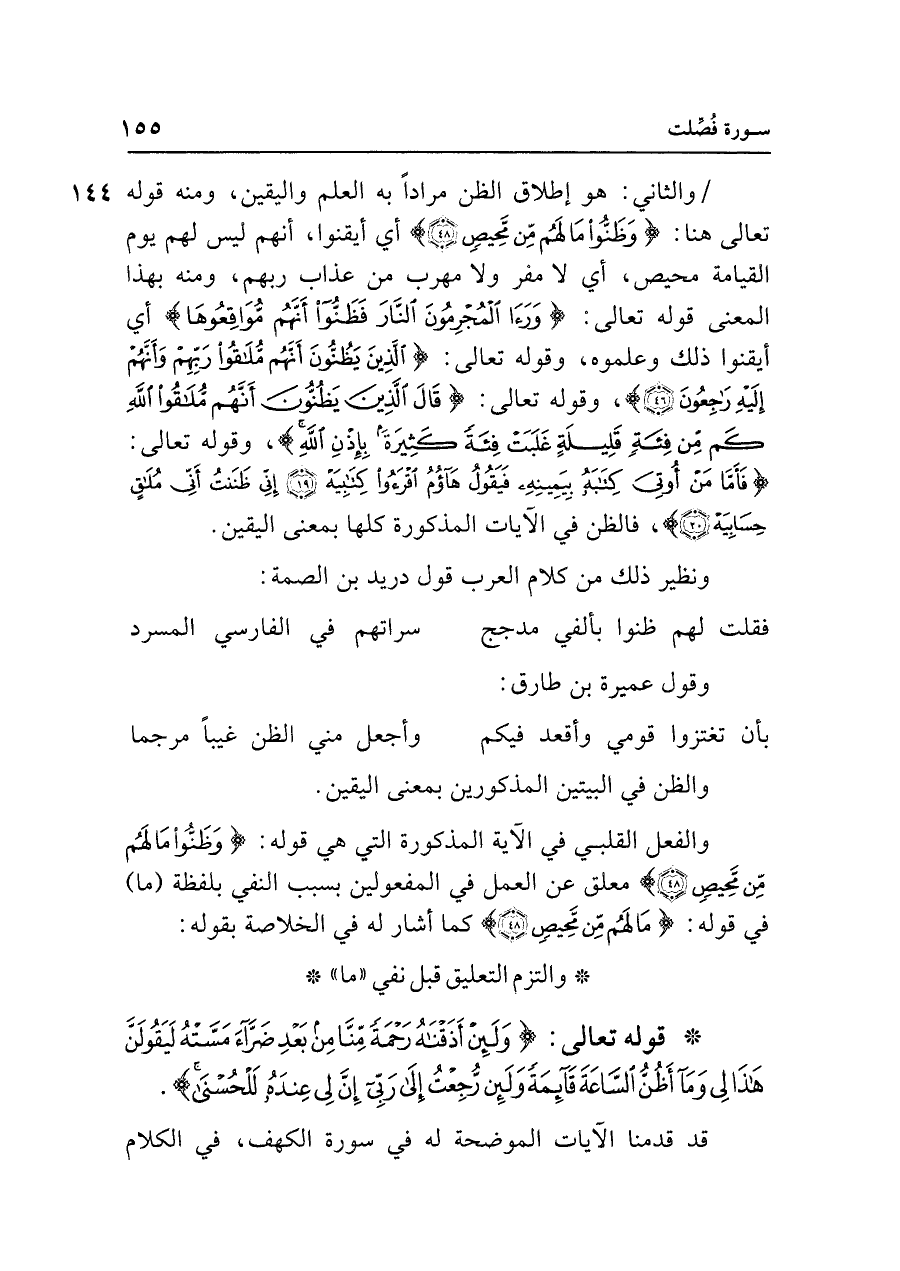 سورة فُصِّلت ١٥٥
/ والثاني: هو إطلاق الظن مراداً به العلم واليقين، ومنه قوله ١٤٤
تعالى هنا: ﴿ وَظَنُّوا۟ مَا لَهُم مِّن مَّحِيصٍ ۝٤٨﴾ أي أيقنوا، أنهم ليس لهم يوم
القيامة محيص، أي لا مفر ولا مهرب من عذاب ربهم، ومنه بهذا
المعنى قوله تعالى: ﴿ وَرَءَا ٱلْمُجْرِمُونَ ٱلنَّارَ فَظَنُّوٓا۟ أَنَّهُم مُّوَاقِعُوهَا ﴾ أي
أيقنوا ذلك وعلموه، وقوله تعالى: ﴿ ٱلَّذِينَ يَظُنُّونَ أَنَّهُم مُّلَـٰقُوا۟ رَبِّهِمْ وَأَنَّهُمْ
إِلَيْهِ رَٰجِعُونَ ۝٤٦﴾، وقوله تعالى: ﴿ قَالَ ٱلَّذِينَ يَظُنُّونَ أَنَّهُم مُّلَـٰقُوا۟ ٱللَّهِ
كَم مِّن فِئَةٍ قَلِيلَةٍ غَلَبَتْ فِئَةً كَثِيرَةًۢ بِإِذْنِ ٱللَّهِۗ ﴾، وقوله تعالى:
﴿ فَأَمَّا مَنْ أُوتِىَ كِتَـٰبَهُۥ بِيَمِينِهِۦ فَيَقُولُ هَآؤُمُ ٱقْرَءُوا۟ كِتَـٰبِيَهْ ۝١٩ إِنِّى ظَنَنتُ أَنِّى مُلَـٰقٍ
حِسَابِيَهْ ۝٢٠﴾، فالظن في الآيات المذكورة كلها بمعنى اليقين.
ونظير ذلك من كلام العرب قول دريد بن الصمة:
فقلت لهم ظنوا بألفي مدجج سراتهم في الفارسي المسرد
وقول عميرة بن طارق:
بأن تغتزوا قومي وأقعد فيكم وأجعل مني الظن غيباً مرجما
والظن في البيتين المذكورين بمعنى اليقين.
والفعل القلبي في الآية المذكورة التي هي قوله: ﴿ وَظَنُّوا۟ مَا لَهُم
مِّن مَّحِيصٍ ۝٤٨﴾ معلق عن العمل في المفعولين بسبب النفي بلفظة (ما)
في قوله: ﴿ مَا لَهُم مِّن مَّحِيصٍ ۝٤٨﴾ كما أشار له في الخلاصة بقوله:
* والتزم التعليق قبل نفي «ما» *
* قوله تعالى: ﴿ وَلَئِنْ أَذَقْنَـٰهُ رَحْمَةً مِّنَّا مِنۢ بَعْدِ ضَرَّآءَ مَسَّتْهُ لَيَقُولَنَّ
هَـٰذَا لِى وَمَآ أَظُنُّ ٱلسَّاعَةَ قَآئِمَةً وَلَئِن رُّجِعْتُ إِلَىٰ رَبِّىٓ إِنَّ لِى عِندَهُۥ لَلْحُسْنَىٰۚ ﴾.
قد قدمنا الآيات الموضحة له في سورة الكهف، في الكلام